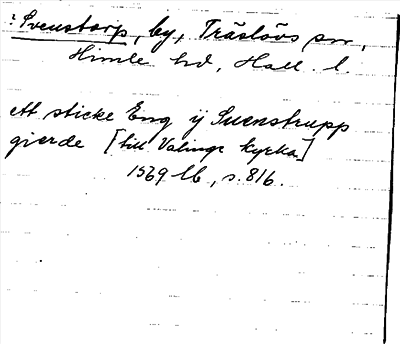 : Svenstorp, by, Träslövs sn,
Himle hd, Hall. l.
ett sticke Eng ij Suenstrupp
gierde [till Valinge kyrka]
1569 lb, s. 816.